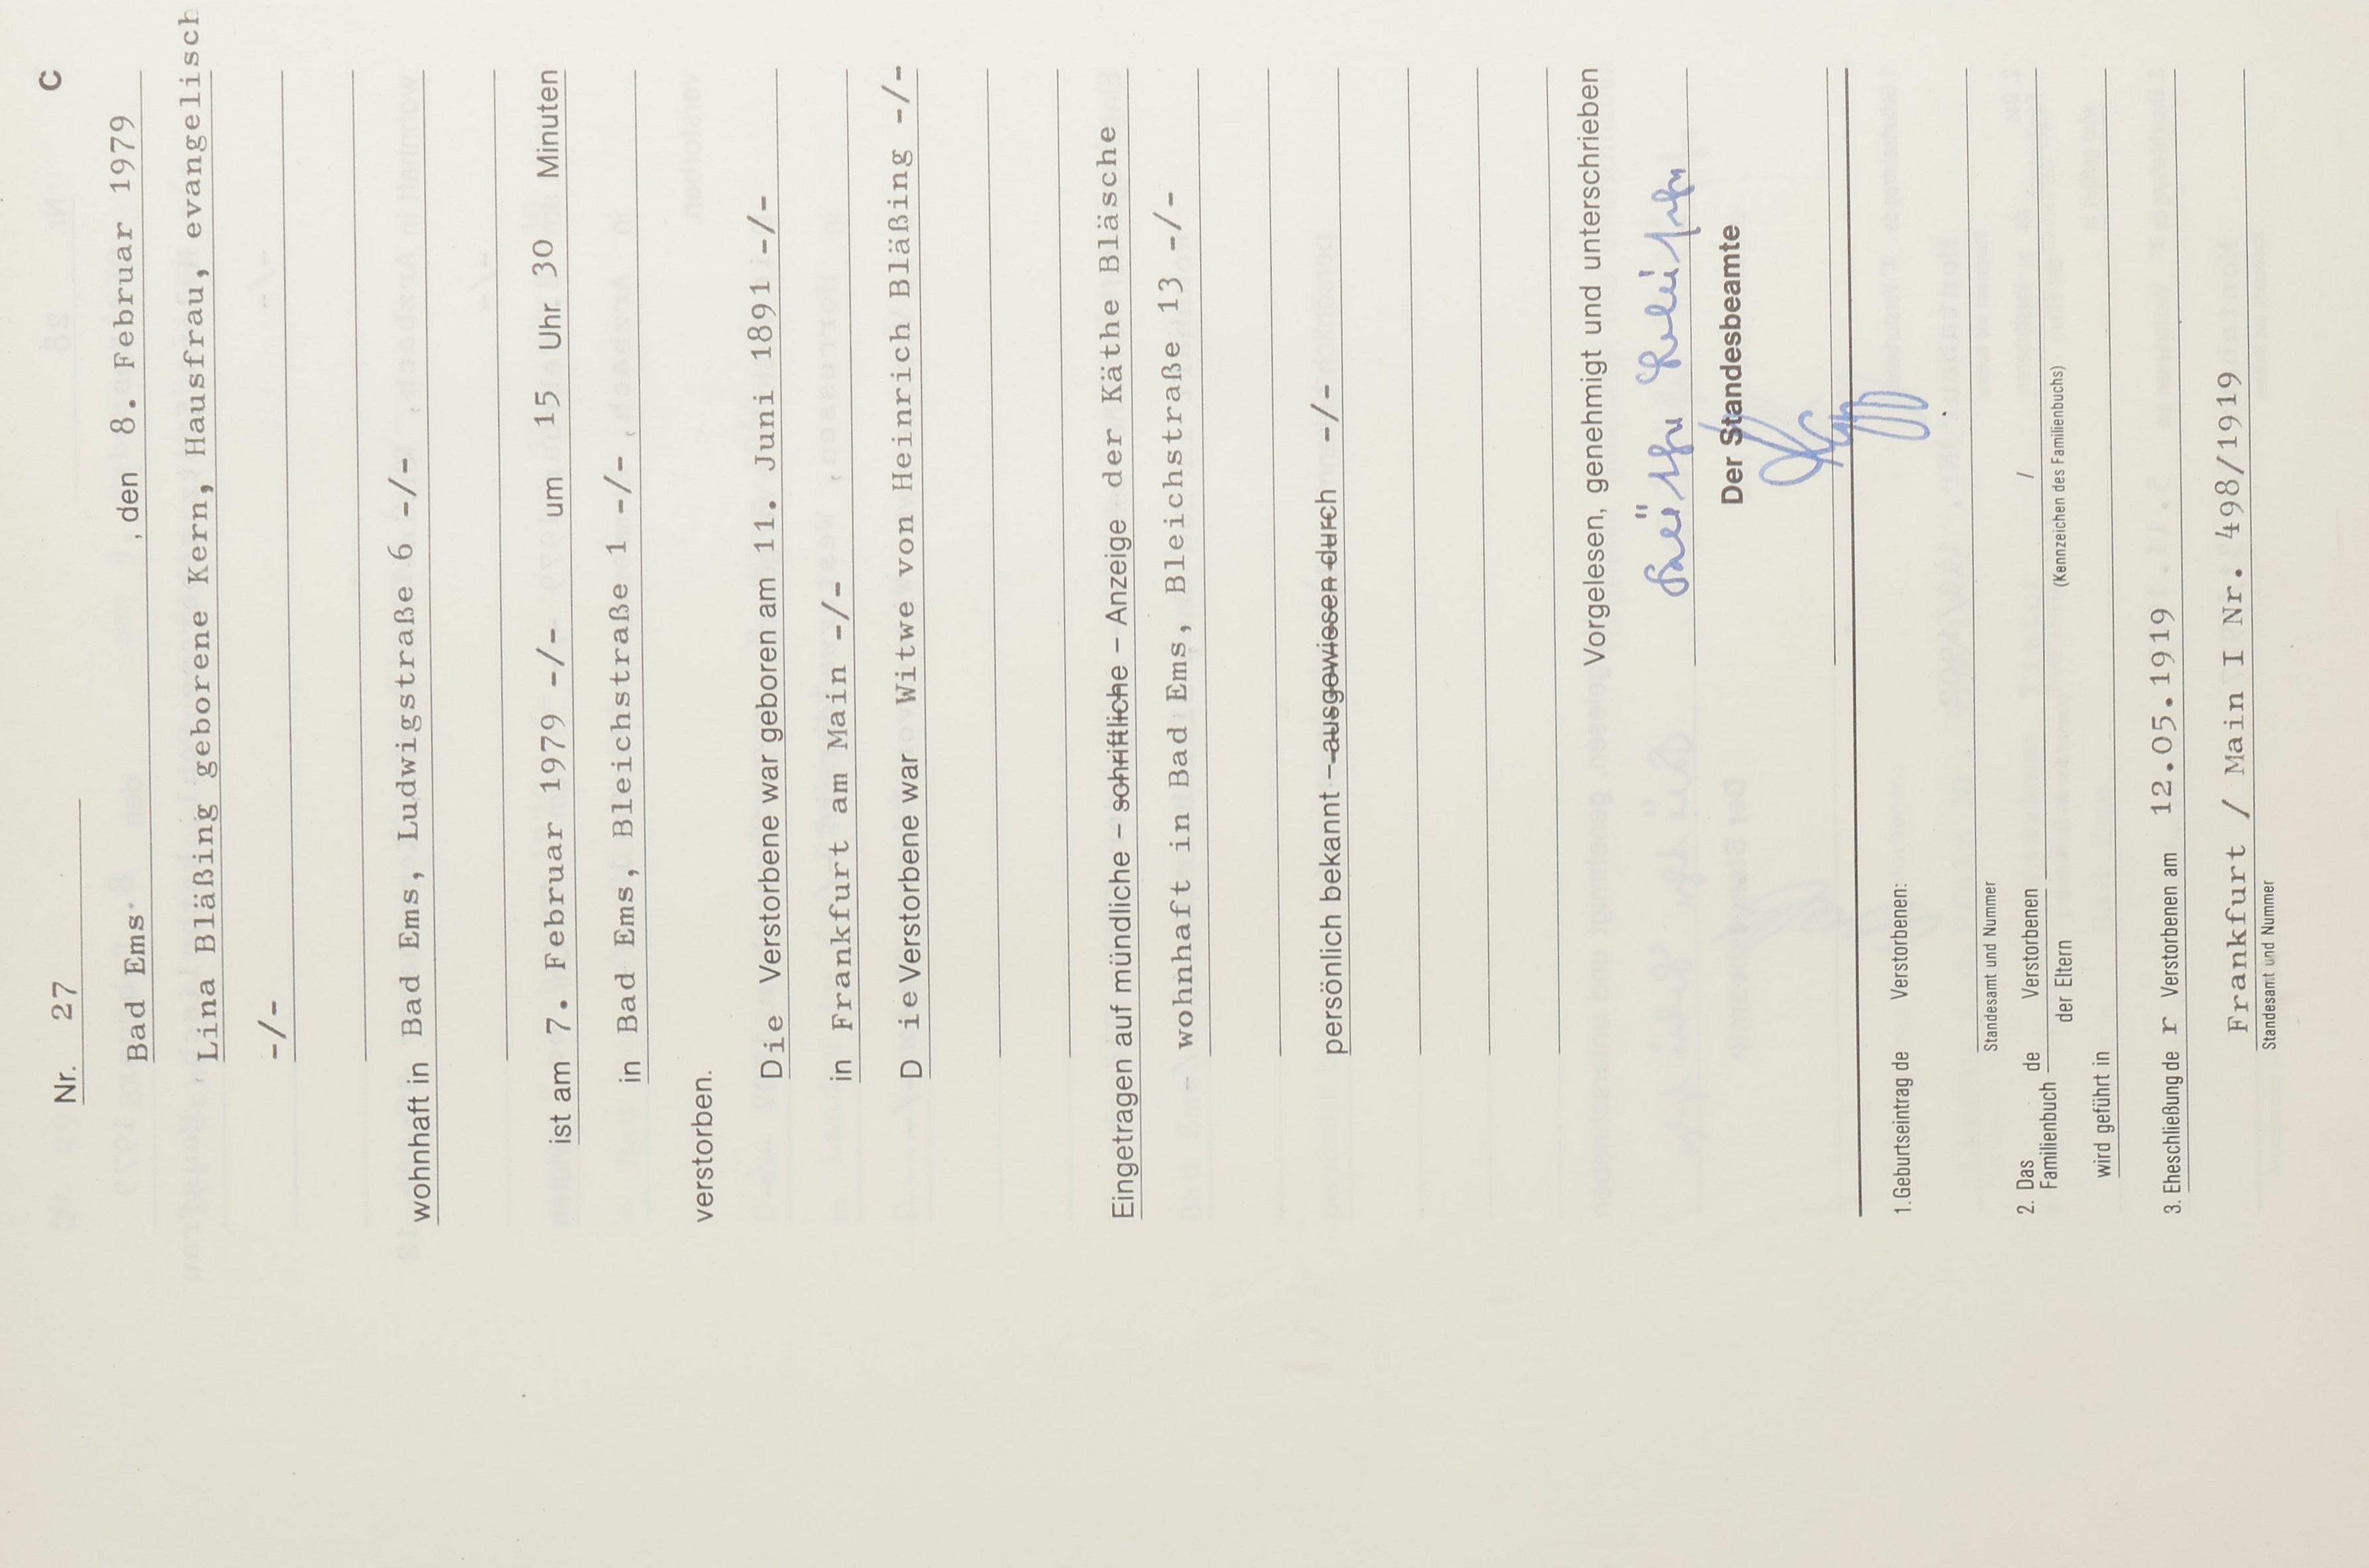 C
Nr. 27
Bad Ems , den 8. Februar 1979
Lina Bläßing geborene Kern, Hausfrau, evangelisch
-/-
wohnhaft in Bad Ems, Ludwigstraße 6 -/-
ist am 7. Februar 1979 -/- um 15 Uhr 30 Minuten
in Bad Ems, Bleichstraße 1 -/-
verstorben.
Die Verstorbene war geboren am 11. Juni 1891 -/-
in Frankfurt am Main -/-
D ie Verstorbene war Witwe von Heinrich Bläßing -/-
Eingetragen auf mündliche – schriftliche – Anzeige der Käthe Bläsche
wohnhaft in Bad Ems, Bleichstraße 13 -/-
persönlich bekannt – ausgewiesen durch -/-
Vorgelesen, genehmigt und unterschrieben
Der Standesbeamte
1. Geburtseintrag de Verstorbenen:
Standesamt und Nummer
2. Das Familienbuch de Verstorbenen der Eltern /
(Kennzeichen des Familienbuchs)
wird geführt in
3. Eheschließung de r Verstorbenen am 12.05.1919
Frankfurt / Main I Nr. 498/1919
Standesamt und Nummer